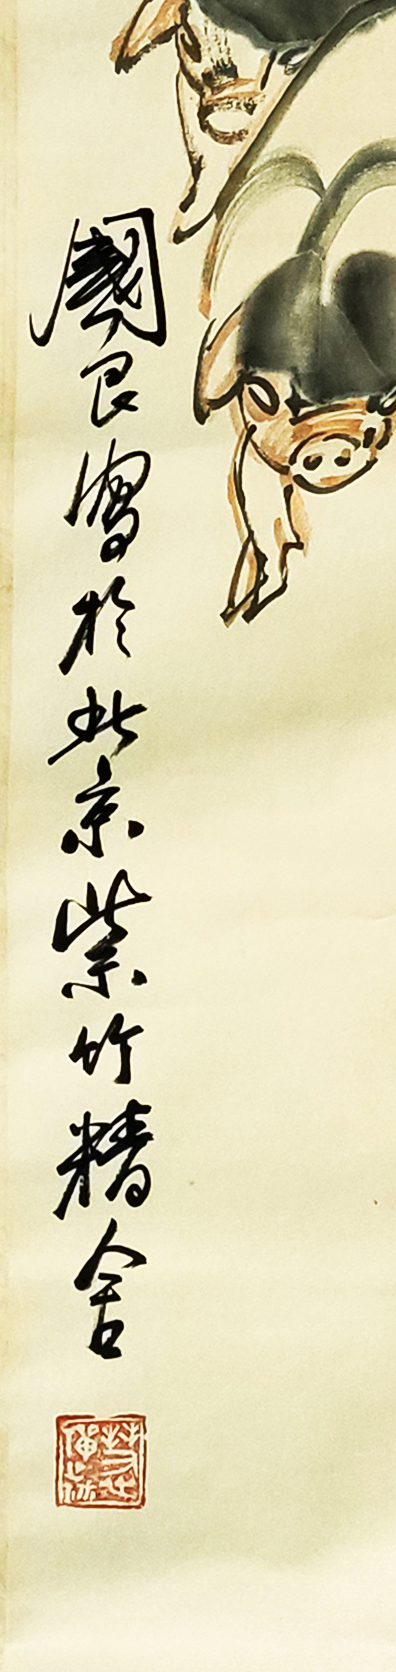 國良寫於北京紫竹精舍